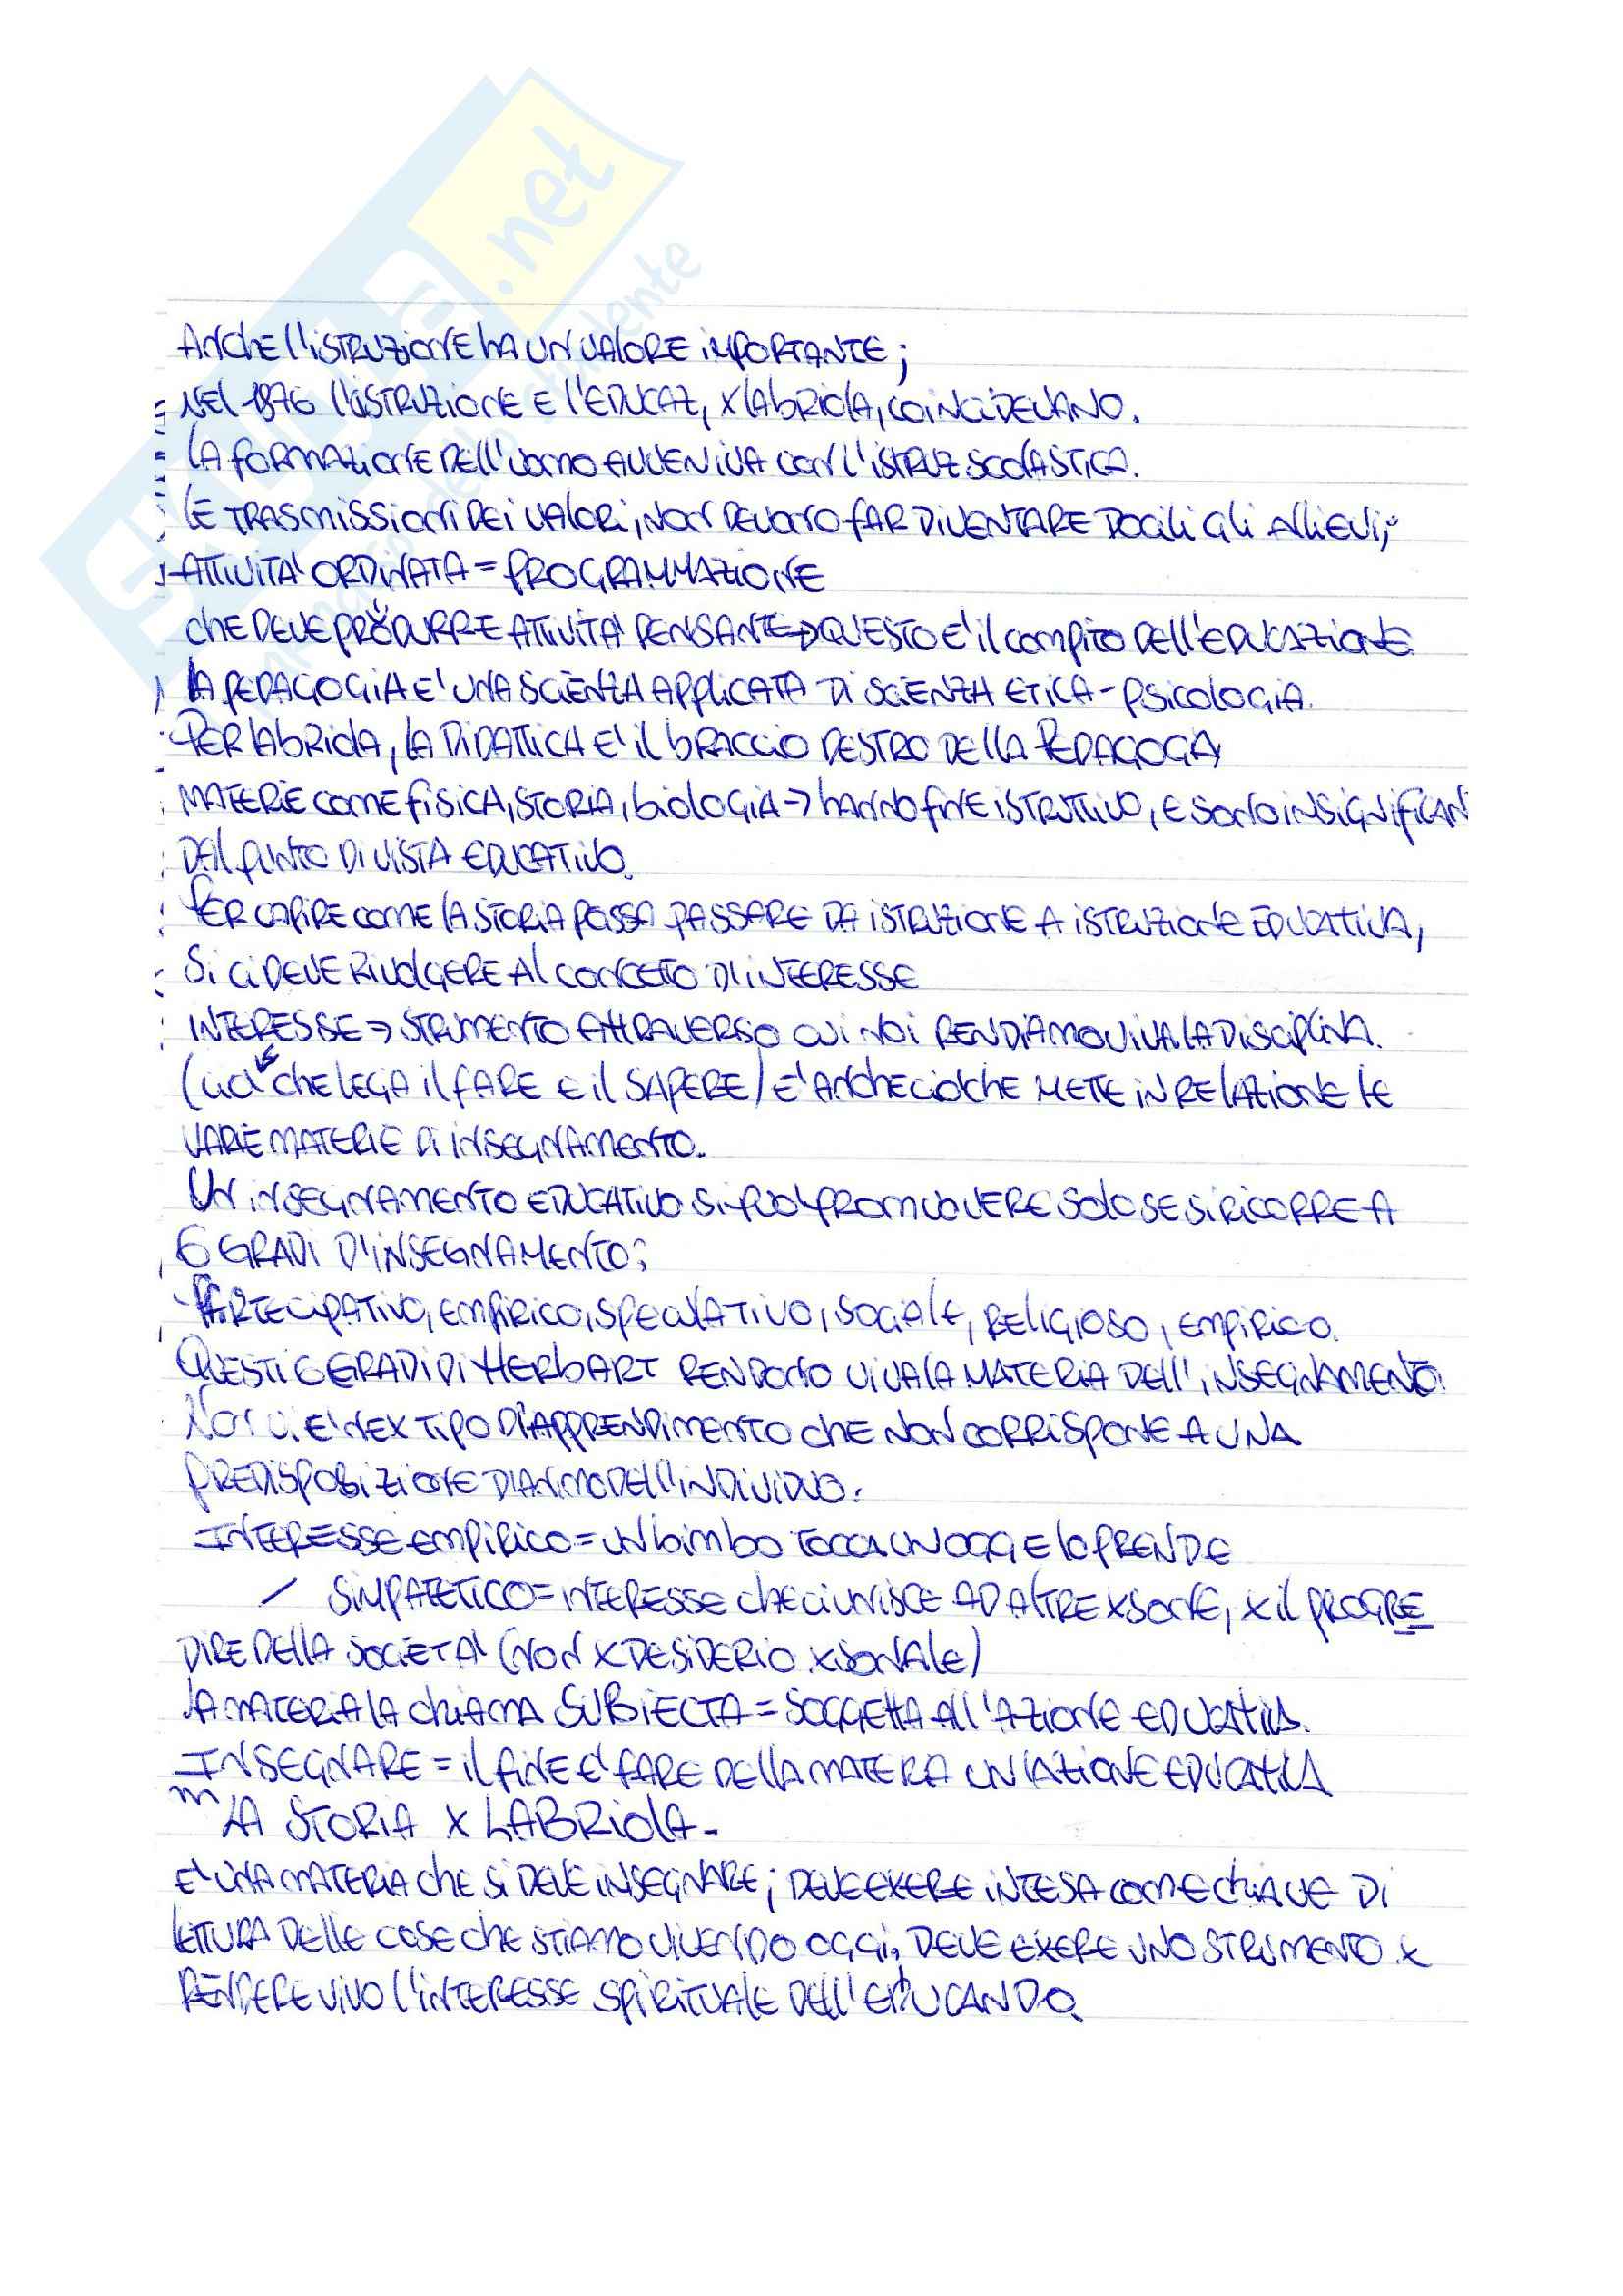 Anche l'istruzione ha un valore importante;
Nel 1876 l'istruzione e l'educaz, x Labriola, coincidevano.
La formazione dell'uomo avveniva con l'istruz scolastica.
Le trasmissioni dei valori, non devono far diventare docili gli allievi;
Attività ordinata = programmazione
che deve produrre attività pensante → questo è il compito dell'educazione
La pedagogia è una scienza applicata di scienza etica - psicologia.
- Per Labriola, la didattica è il braccio destro della Pedagogia
Materie come fisica, storia, biologia → hanno fine istruttivo, e sono insignifican
dal punto di vista educativo.
Per capire come la storia possa passare da istruzione a istruzione educativa,
si ci deve rivolgere al concetto di interesse
Interesse → strumento attraverso cui noi rendiamo viva la disciplina.
(ciò che lega il fare e il sapere) è anche ciò che mette in relazione le
varie materie di insegnamento.
Un insegnamento educativo si può promuovere solo se si ricorre a
6 gradi d'insegnamento:
- Partecipativo, empirico, speculativo, sociale, religioso, empirico.
Questi 6 gradi di Herbart rendono viva la materia dell'insegnamento.
Non è nex tipo di apprendimento che non corrisponde a una
predisposizione d'animo dell'individuo.
Interesse empirico = un bimbo tocca un ogg e lo prende
/ simpatetico = interesse che ci unisce ad altre xsone, x il progre
dire della società (non x desiderio xsonale)
La materia la chiama SUBIECTA = soggetta all'azione educativa.
Insegnare = il fine è fare della materia un'azione educativa
La storia x Labriola -
è una materia che si deve insegnare; deve exere intesa come chiave di
lettura delle cose che stiamo vivendo oggi, deve exere uno strumento x
rendere vivo l'interesse spirituale dell'educando.
.net